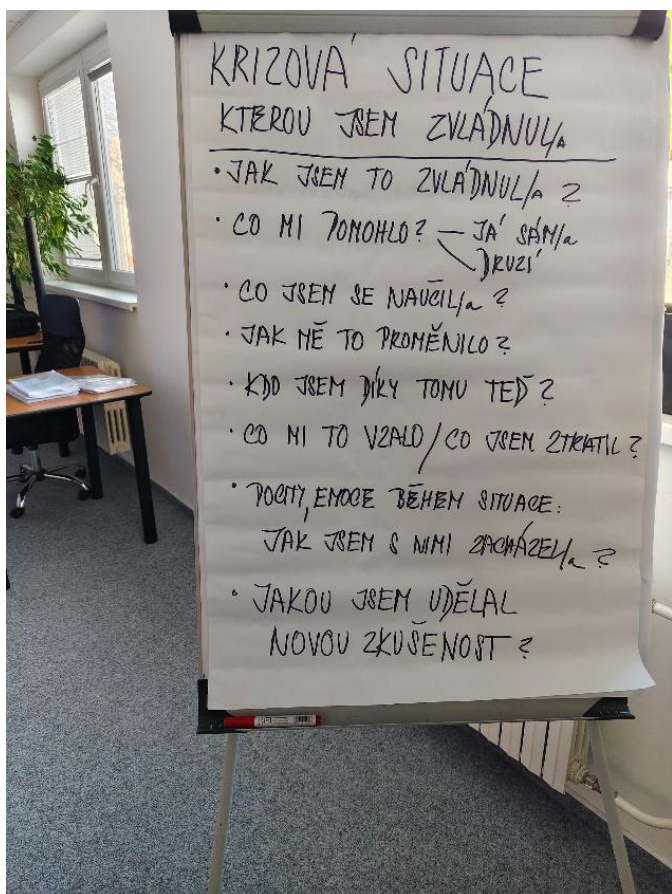 KRIZOVÁ SITUACE
KTEROU JSEM ZVLÁDNUL/A
• JAK JSEM TO ZVLÁDNUL/A ?
• CO MI POMOHLO? — JÁ SÁM/a
DRUZÍ
• CO JSEM SE NAUČIL/a ?
• JAK MĚ TO PROMĚNILO ?
• KDO JSEM DÍKY TOMU TEĎ ?
• CO MI TO VZALO / CO JSEM ZTRATIL ?
• POCITY, EMOCE BĚHEM SITUACE:
JAK JSEM S NIMI ZACHÁZEL/a ?
• JAKOU JSEM UDĚLAL
NOVOU ZKUŠENOST ?